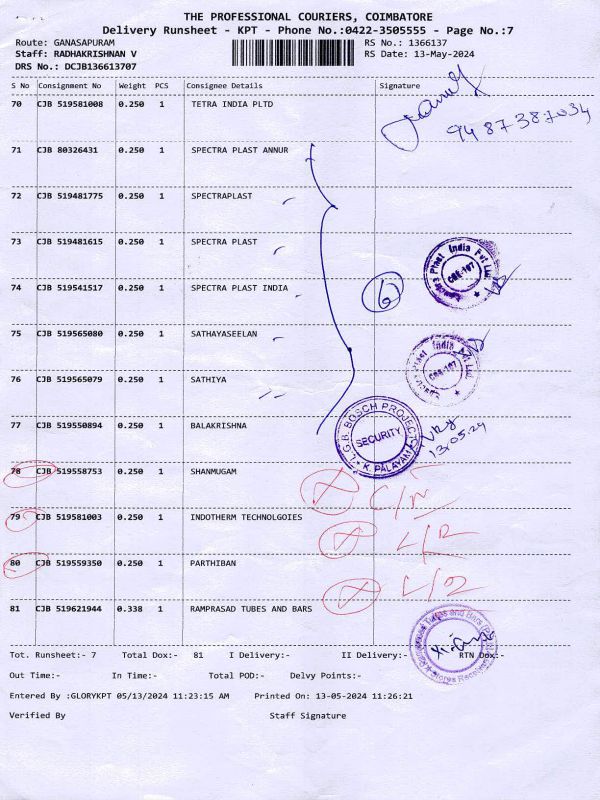 THE PROFESSIONAL COURIERS, COIMBATORE
Delivery Runsheet - KPT - Phone No.:0422-3505555 - Page No.:7
Route: GANASAPURAM RS No.: 1366137
Staff: RADHAKRISHNAN V RS Date: 13-May-2024
DRS No.: DCJB136613707
S No Consignment No Weight PCS Consignee Details Signature
70 CJB 519581008 0.250 1 TETRA INDIA PLTD
9487387034
71 CJB 80326431 0.250 1 SPECTRA PLAST ANNUR
72 CJB 519481775 0.250 1 SPECTRAPLAST
73 CJB 519481615 0.250 1 SPECTRA PLAST
Spectra Plast India Pvt Ltd
CBE-107
74 CJB 519541517 0.250 1 SPECTRA PLAST INDIA
6
75 CJB 519565080 0.250 1 SATHAYASEELAN
Spectra Plast India Pvt Ltd
CBE-107
76 CJB 519565079 0.250 1 SATHIYA
77 CJB 519550894 0.250 1 BALAKRISHNA
L.G.B. BOSCH PROJECTS
SECURITY
K. PALAYAM
13.05.24
78 CJB 519558753 0.250 1 SHANMUGAM
79 CJB 519581003 0.250 1 INDOTHERM TECHNOLGOIES
80 CJB 519559350 0.250 1 PARTHIBAN
81 CJB 519621944 0.338 1 RAMPRASAD TUBES AND BARS
Tubes and Bars
Stores Received
Tot. Runsheet:- 7 Total Dox:- 81 I Delivery:- II Delivery:- RTN Dox:-
Out Time:- In Time:- Total POD:- Delvy Points:-
Entered By :GLORYKPT 05/13/2024 11:23:15 AM Printed On: 13-05-2024 11:26:21
Verified By Staff Signature